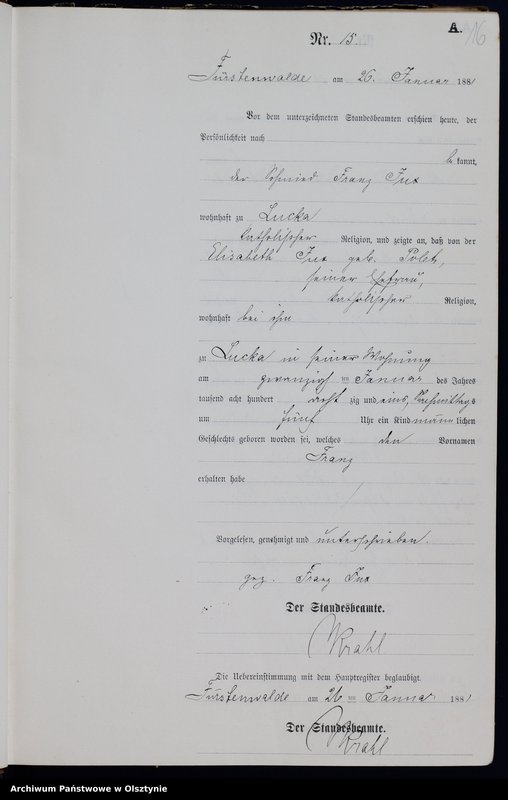 A.
16
Nr. 15.
Fürstenwalde am 26. Januar 1881
Vor dem unterzeichneten Standesbeamten erschien heute, der
Persönlichkeit nach
be kannt,
der Schmied Franz Fux
wohnhaft zu Lucka
katholischer Religion, und zeigte an, daß von der
Elisabeth Fux geb.
seiner Ehefrau,
katholischer Religion,
wohnhaft bei ihm
zu Lucka in seiner Wohnung
am zwanzigsten Januar des Jahres
tausend acht hundert acht zig und eins, Nachmittags
um fünf Uhr ein Kind männ lichen
Geschlechts geboren worden sei, welches den Vornamen
Franz
erhalten habe
Vorgelesen, genehmigt und unterschrieben.
gez. Franz Fux
Der Standesbeamte.
Krahl
Die Uebereinstimmung mit dem Hauptregister beglaubigt.
Fürstenwalde am 26 ten Januar 1881
Der Standesbeamte.
Krahl
Archiwum Państwowe w Olsztynie